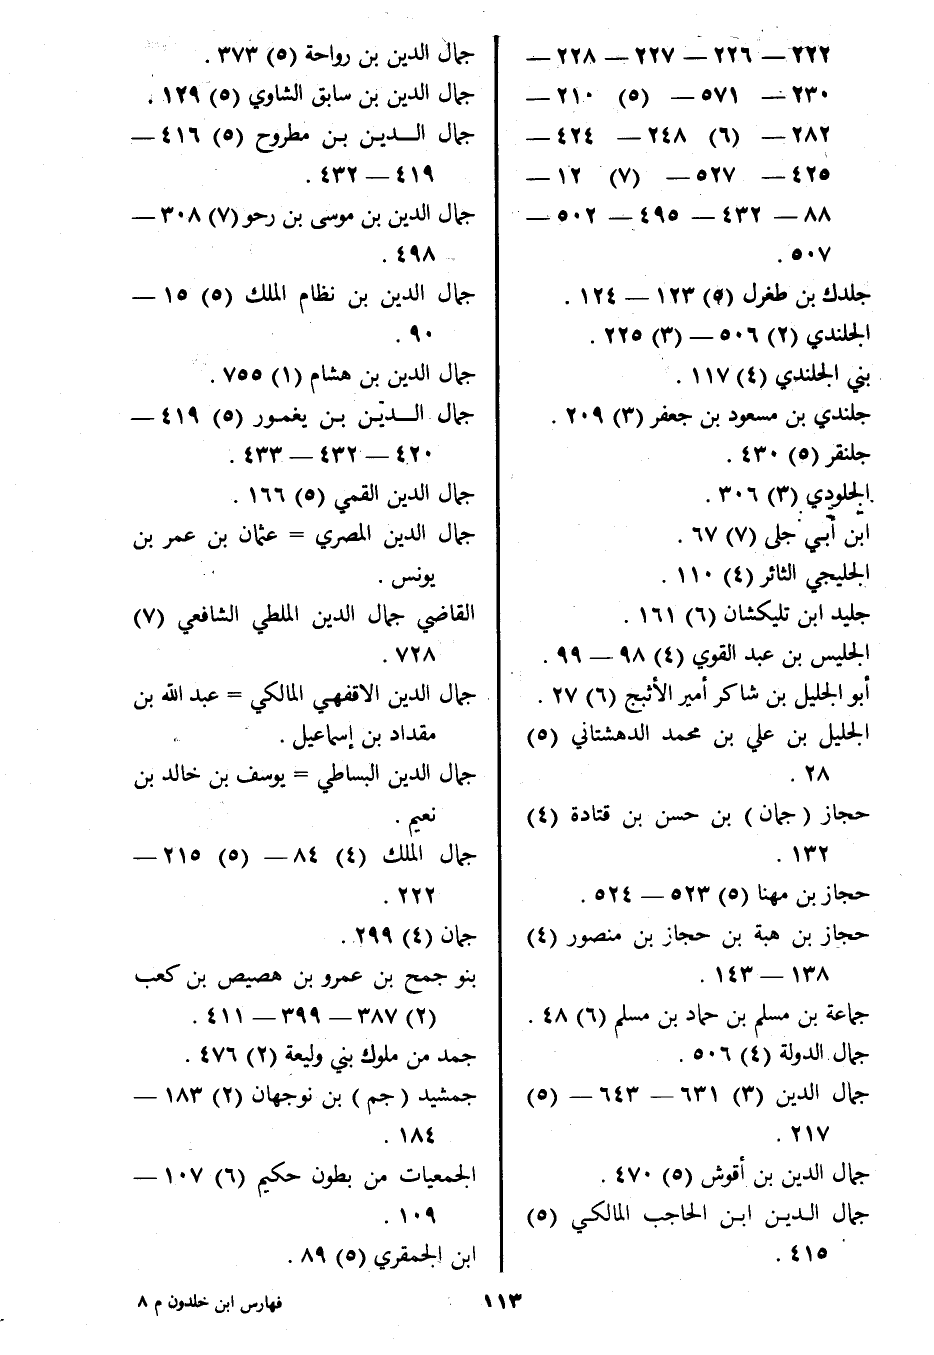 ٢٢٢ — ٢٢٦ — ٢٢٧ — ٢٢٨ —
٢٣٠ — ٥٧١ — (٥) ٢١٠ —
٢٨٢ — (٦) ٢٤٨ — ٤٢٤ —
٤٢٥ — ٥٢٧ — (٧) ١٢ —
٨٨ — ٤٣٢ — ٤٩٥ — ٥٠٢ —
٥٠٧ .
جلدك بن طغرل (٥) ١٢٣ — ١٢٤ .
الجلندي (٢) ٥٠٦ — (٣) ٢٢٥ .
بني الجلندي (٤) ١١٧ .
جلندي بن مسعود بن جعفر (٣) ٢٠٩ .
جلنقر (٥) ٤٣٠ .
الجلودي (٣) ٣٠٦ .
ابن أبي جلى (٧) ٦٧ .
الجليجي الثائر (٤) ١١٠ .
جليد ابن تليكشان (٦) ١٦١ .
الجليس بن عبد القوي (٤) ٩٨ — ٩٩ .
أبو الجليل بن شاكر أمير الأثبج (٦) ٢٧ .
الجليل بن علي بن محمد الدهشتاني (٥)
٢٨ .
حجاز (جمان) بن حسن بن قتادة (٤)
١٣٢ .
حجاز بن مهنا (٥) ٥٢٣ — ٥٢٤ .
حجاز بن هبة بن حجاز بن منصور (٤)
١٣٨ — ١٤٣ .
جماعة بن مسلم بن حماد بن مسلم (٦) ٤٨ .
جمال الدولة (٤) ٥٠٦ .
جمال الدين (٣) ٦٣١ — ٦٤٣ — (٥)
٢١٧ .
جمال الدين بن أقوش (٥) ٤٧٠ .
جمال الدين ابن الحاجب المالكي (٥)
٤١٥ .
جمال الدين بن رواحة (٥) ٣٧٣ .
جمال الدين بن سابق الشاوي (٥) ١٢٩ .
جمال الدين بن مطروح (٥) ٤١٦ —
٤١٩ — ٤٣٢ .
جمال الدين بن موسى بن رحو (٧) ٣٠٨ —
٤٩٨ .
جمال الدين بن نظام الملك (٥) ١٥ —
٩٠ .
جمال الدين بن هشام (١) ٧٥٥ .
جمال الدين بن يغمور (٥) ٤١٩ —
٤٢٠ — ٤٣٢ — ٤٣٣ .
جمال الدين القمي (٥) ١٦٦ .
جمال الدين المصري = عثمان بن عمر بن
يونس .
القاضي جمال الدين الملطي الشافعي (٧)
٧٢٨ .
جمال الدين الاقفهي المالكي = عبد الله بن
مقداد بن إسماعيل .
جمال الدين البساطي = يوسف بن خالد بن
نعيم .
جمال الملك (٤) ٨٤ — (٥) ٢١٥ —
٢٢٢ .
جمان (٤) ٢٩٩ .
بنو جمح بن عمرو بن هصيص بن كعب
(٢) ٣٨٧ — ٣٩٩ — ٤١١ .
جمد من ملوك بني وليعة (٢) ٤٧٦ .
جمشيد (جم) بن نوجهان (٢) ١٨٣ —
١٨٤ .
الجمعيات من بطون حكيم (٦) ١٠٧ —
١٠٩ .
ابن الجمقري (٥) ٨٩ .
١١٣
فهارس ابن خلدون م ٨